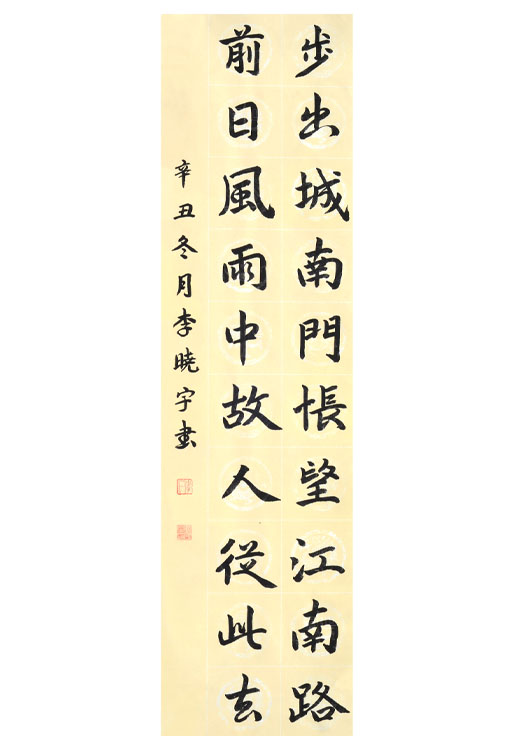 步出城南門悵望江南路
前日風雨中故人從此去
辛丑冬月李曉宇書